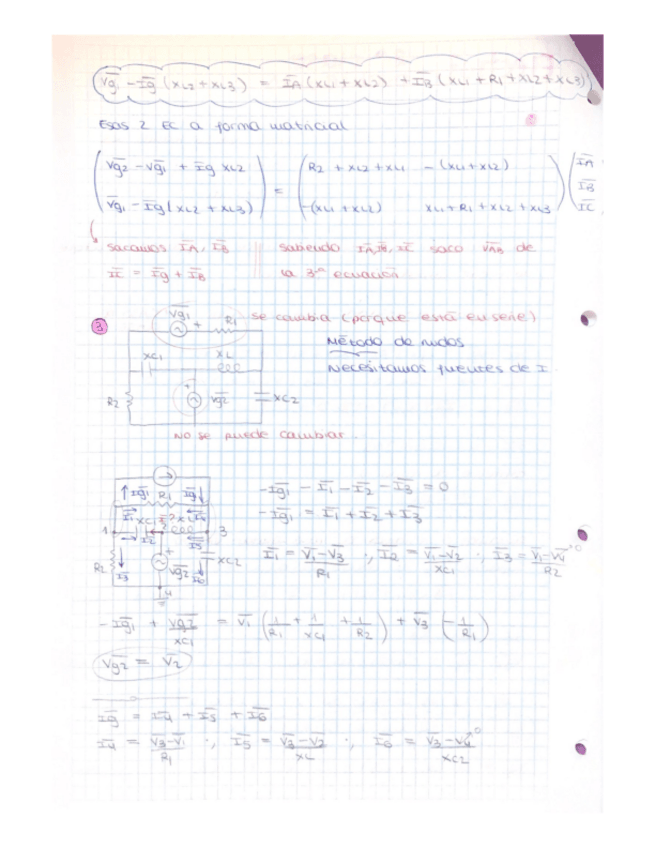 Vg1 - Ig (XL2 + XL3) = IA (XL1 + XL2) + IB (XL1 + R1 + XL2 + XL3)
?
Esas 2 EC a forma matricial
Vg2 - Vg1 + Ig XL2 R2 + XL2 + XL1 - (XL1 + XL2) IA
= IB
Vg1 - Ig (XL2 + XL3) -(XL1 + XL2) XL1 + R1 + XL2 + XL3 IC
sacamos IA, IB sabiendo IA, IB, IC saco VAB de
IC = Ig + IB la 3ª ecuación
3 Vg1 R1 se cambia (porque está en serie)
+ Método de nudos
XC1 XL Necesitamos fuentes de I.
R2 + Vg2 XC2
NO se puede cambiar.
Ig1 R1 Ig1 -Ig1 - I1 - I2 - I3 = 0
I1 XC1 2 XL I4 -Ig1 = I1 + I2 + I3
1 I2 I5 3
R2 I3 + Vg2 I6 XC2 I1 = V1 - V3 / R1 ; I2 = V1 - V2 / XC1 ; I3 = V1 - V4 / R2 0
4
-Ig1 + Vg2 / XC1 = V1 (1/R1 + 1/XC1 + 1/R2) + V3 (-1/R1)
Vg2 = V2
Ig = I4 + I5 + I6
I4 = V3 - V1 / R1 ; I5 = V3 - V2 / XL ; I6 = V3 - V4 / XC2 0